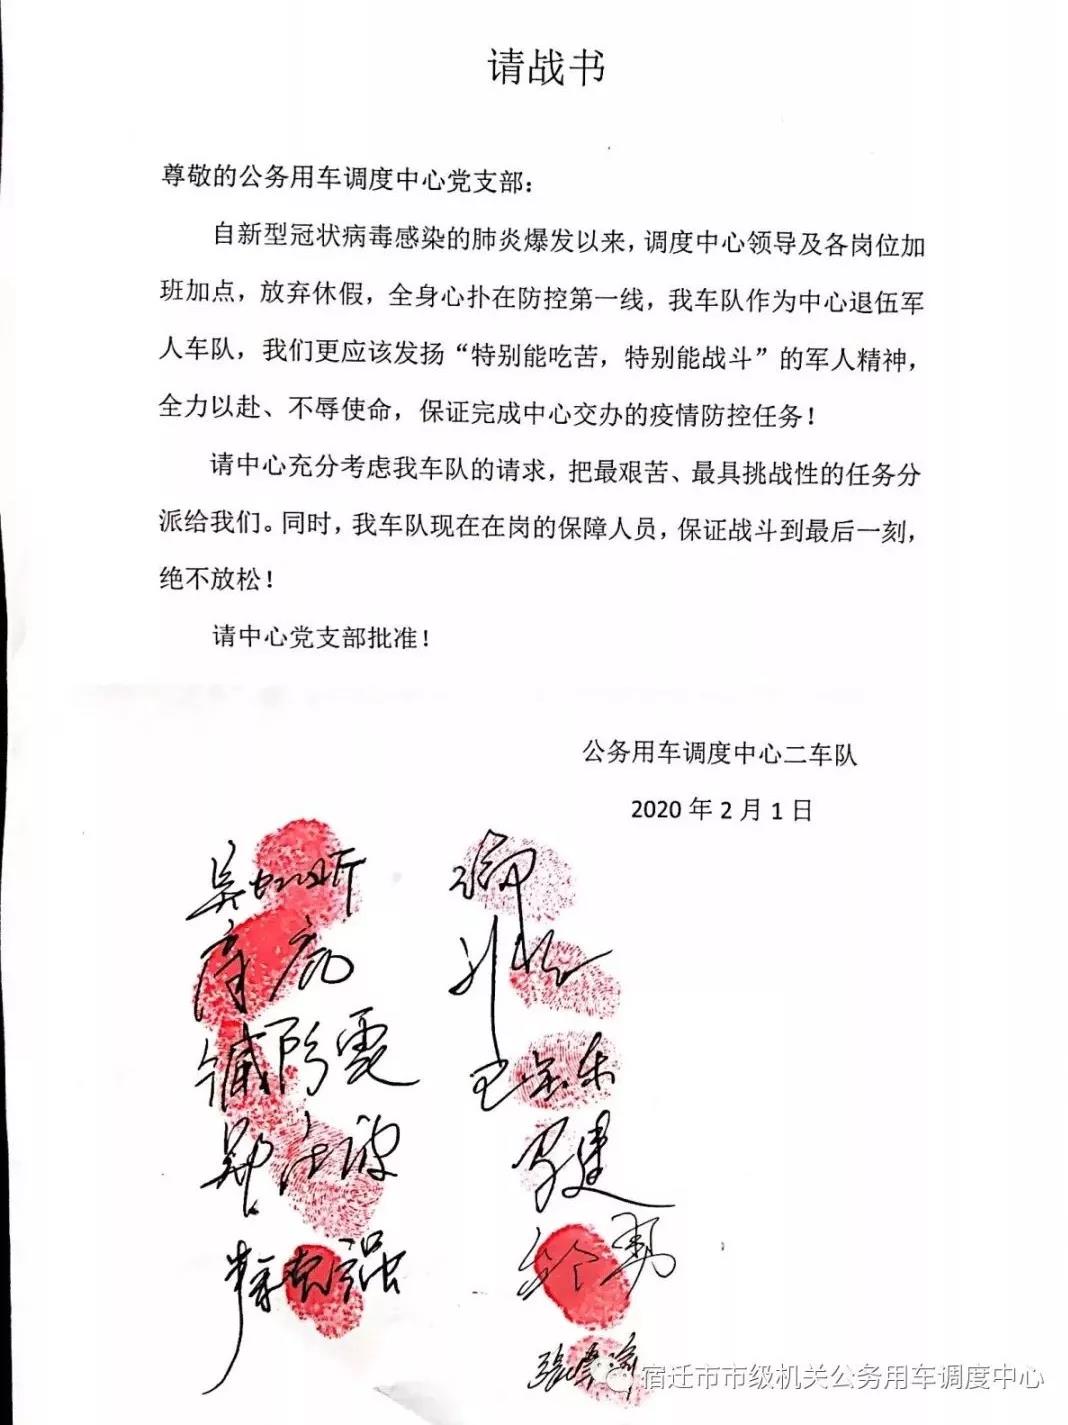 请战书
尊敬的公务用车调度中心党支部：
自新型冠状病毒感染的肺炎爆发以来，调度中心领导及各岗位加
班加点，放弃休假，全身心扑在防控第一线，我车队作为中心退伍军
人车队，我们更应该发扬“特别能吃苦，特别能战斗”的军人精神，
全力以赴、不辱使命，保证完成中心交办的疫情防控任务！
请中心充分考虑我车队的请求，把最艰苦、最具挑战性的任务分
派给我们。同时，我车队现在在岗的保障人员，保证战斗到最后一刻，
绝不放松！
请中心党支部批准！
公务用车调度中心二车队
2020 年 2 月 1 日
宿迁市市级机关公务用车调度中心